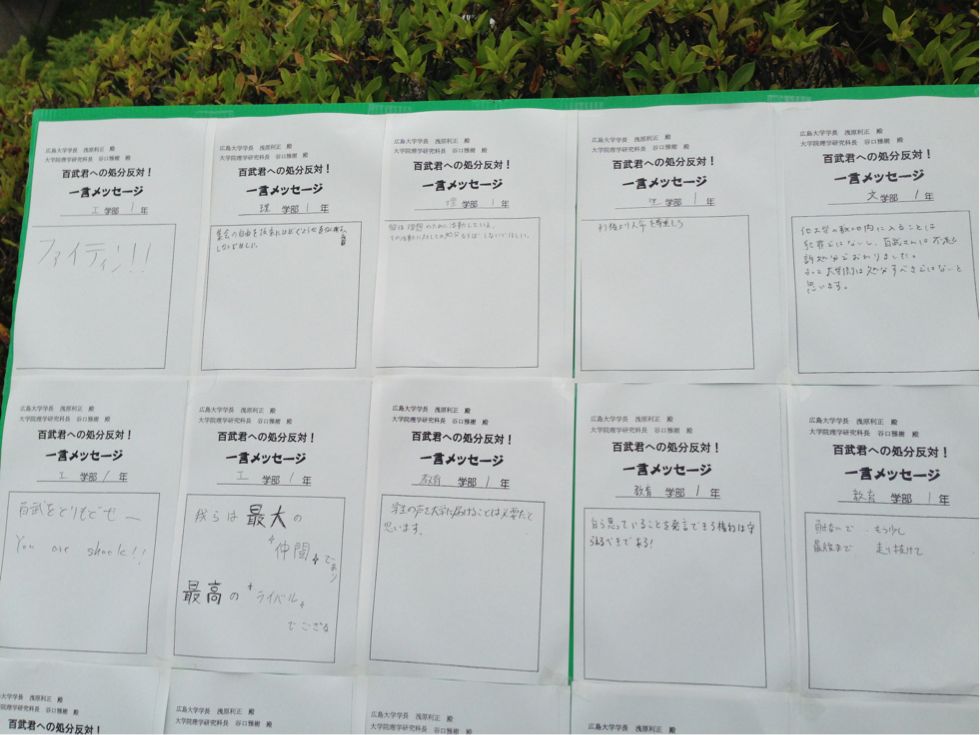 広島大学学長　浅原利正　殿
大学院理学研究科長　谷口雅樹　殿
百武君への処分反対！
一言メッセージ
工 学部 1 年
ファイティン!!
広島大学学長　浅原利正　殿
大学院理学研究科長　谷口雅樹　殿
百武君への処分反対！
一言メッセージ
理 学部 1 年
集会の自由を
しないでほしい。
広島大学学長　浅原利正　殿
大学院理学研究科長　谷口雅樹　殿
百武君への処分反対！
一言メッセージ
理 学部 1 年
理想のために活動している。
その活動に対しての処分などは しないでほしい。
広島大学学長　浅原利正　殿
大学院理学研究科長　谷口雅樹　殿
百武君への処分反対！
一言メッセージ
学部 1 年
広島大学学長　浅原利正　殿
大学院理学研究科長　谷口雅樹　殿
百武君への処分反対！
一言メッセージ
文 学部 1 年
他大学の敷地内に入ることは
犯罪ではないし、百武さんは不起
訴処分でおわりました。
よって大学側は処分すべきではないと
思います。
広島大学学長　浅原利正　殿
大学院理学研究科長　谷口雅樹　殿
百武君への処分反対！
一言メッセージ
工 学部 1 年
百武をとりもどせー
You are shock!!
広島大学学長　浅原利正　殿
大学院理学研究科長　谷口雅樹　殿
百武君への処分反対！
一言メッセージ
工 学部 1 年
我らは 最大の
"仲間"であり
最高の "ライバル"
でござる
広島大学学長　浅原利正　殿
大学院理学研究科長　谷口雅樹　殿
百武君への処分反対！
一言メッセージ
教育 学部 1 年
学生の声を大学に届けることは必要だと
思います。
広島大学学長　浅原利正　殿
大学院理学研究科長　谷口雅樹　殿
百武君への処分反対！
一言メッセージ
教育 学部 1 年
自ら思っていることを発言できる権利は守
られるべきである!
広島大学学長　浅原利正　殿
大学院理学研究科長　谷口雅樹　殿
百武君への処分反対！
一言メッセージ
教育 学部 1 年
負けないで もう少し
最後まで 走り抜けて
広島大学学長　浅原利正　殿
大学院理学研究科長　谷口雅樹　殿
百武君への処分反対！
広島大学学長　浅原利正　殿
大学院理学研究科長　谷口雅樹　殿
広島大学学長　浅原利正　殿
大学院理学研究科長　谷口雅樹　殿
広島大学学長　浅原利正　殿